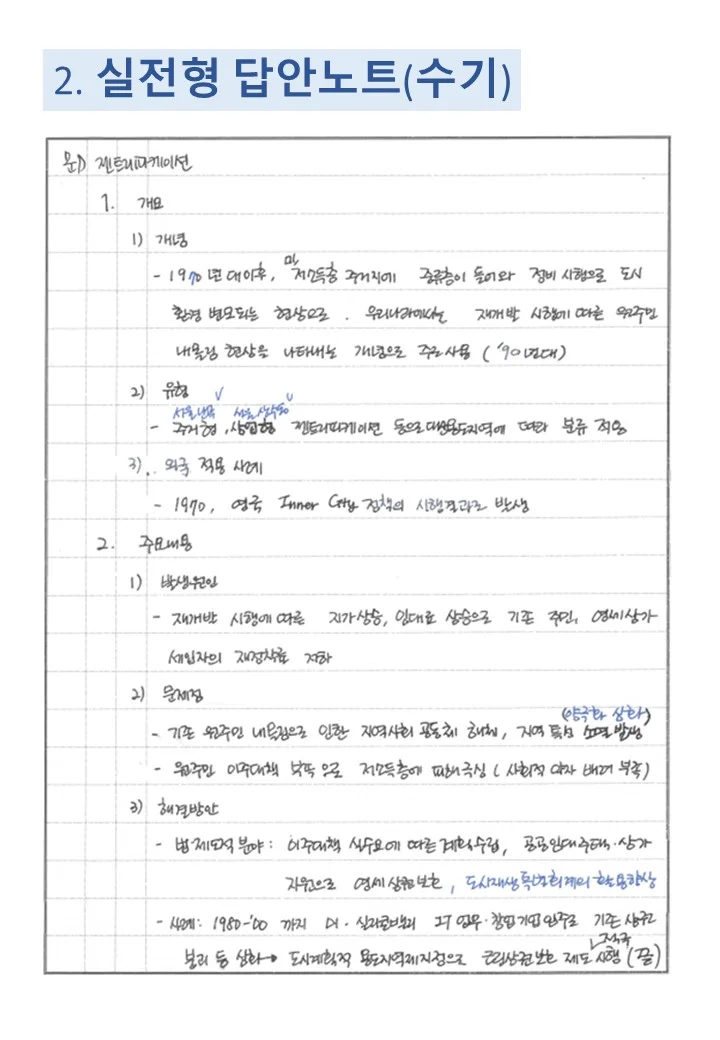 2. 실전형 답안노트(수기)
문1) 젠트리피케이션
1. 개요
1) 개념
- 1970년대이후, 및 저소득층 주거지에 중류층이 들어와 정비 시행으로 도시
환경 변모되는 현상으로. 우리나라에서는 재개발 시행에 따른 원주민
내몰림 현상을 나타내는 개념으로 주로 사용 ('90년대)
2) 유형
- 주거형, 상업형 젠트리피케이션 등으로 용도지역에 따라 분류 적용
3) 외국 적용 사례
- 1970, 영국 Inner City 정책의 시행결과로 발생
2. 주요내용
1) 발생원인
- 재개발 시행에 따른 지가상승, 임대료 상승으로 기존 주민, 영세상가
세입자의 재정착률 저하
2) 문제점
(양극화 심화)
- 기존 원주민 내몰림으로 인한 지역사회 공동체 해체, 지역 특성 소멸 발생
- 원주민 이주대책 부족으로 저소득층에 피해극심 (사회적 약자 배려 부족)
3) 해결방안
- 법·제도적 분야: 이주대책 실수요에 따른 계획수립, 공공임대주택·상가
지원으로 영세상권보호, 도시재생특별회계의 활용향상
- 사례: 1980-'00 까지 미·실리콘밸리 IT 업무·창업기업 입주로 기존 상권
분리 등 심화→ 도시계획적 용도지역제지정으로 근린상권보호 제도 적극 시행 (끝)